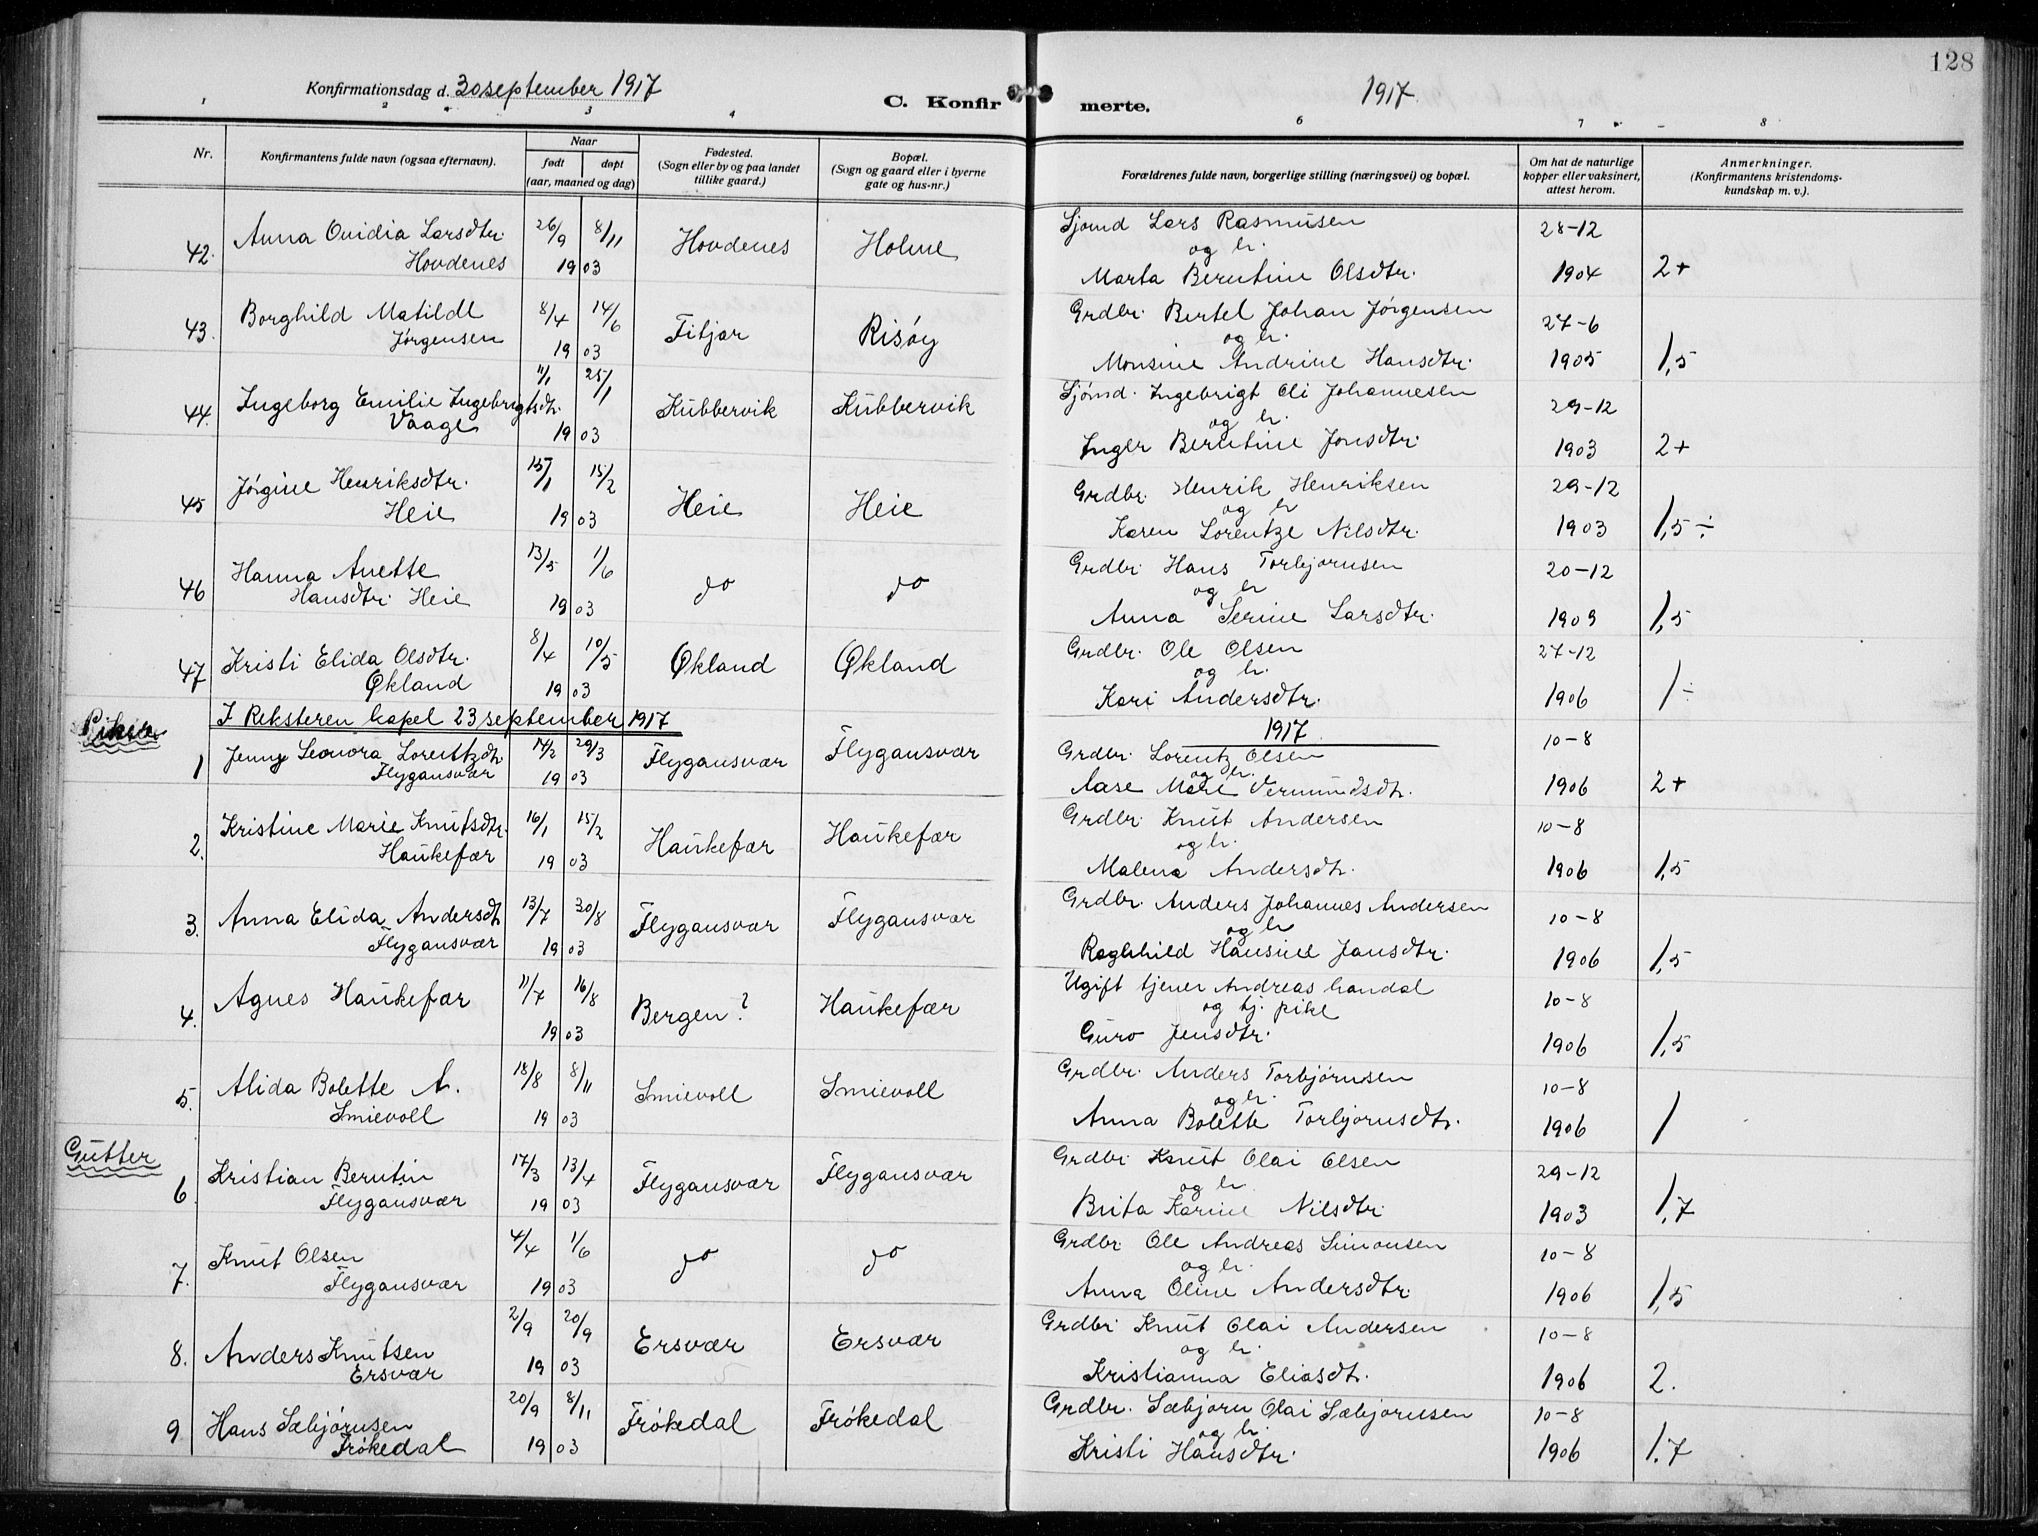 128
Konfirmationsdag d. 30 september 1917
C. Konfirmerte.
1917.
1 2 3 4 6 7 8
Nr.
Konfirmantens fulde navn (ogsaa efternavn).
Naar
født døpt
(aar, maaned og dag)
Fødested.
(Sogn eller by og paa landet
tillike gaard.)
Bopæl.
(Sogn og gaard eller i byerne
gate og hus-nr.)
Forældrenes fulde navn, borgerlige stilling (næringsvei) og bopæl.
Om hat de naturlige
kopper eller vaksinert,
attest herom.
Anmerkninger.
(Konfirmantens kristendoms-
kundskap m. v.).
42. Anna Ovidia Larsdtr. 26/9 8/11 Hovdenes Holme Sjømd Lars Rasmusen 28-12
Hovdenes 1903 og h. Marta Berntine Olsdtr. 1904 2+
43. Borghild Matilde 8/4 14/6 Fitjar Risøy Grdbr. Bertel Johan Jørgensen 27-6
Jørgensen 1903 og h. Monsine Andrine Hansdtr. 1905 1,5
44. Ingeborg Emilie Ingebrigtsdtr. 11/1 25/1 Kubbervik Kubbervik Sjømd. Ingebrigt Oli Johannesen 29-12
Vaage 1903 og h. Inger Berntine Jonsdtr. 1903 2+
45 Jørgine Henriksdtr. 15/1 15/2 Heie Heie Grdbr. Henrik Henriksen 29-12
Heie 1903 og h Karen Lorentze Nilsdtr. 1903 1,5 ÷
46 Hanna Anette 13/5 1/6 do do Grdbr. Hans Torbjørnsen 20-12
Hansdtr. Heie 1903 og h Anna Serine Larsdtr. 1909 1,5
47 Kristi Elida Olsdtr. 8/4 10/5 Økland Økland Grdbr. Ole Olsen 27-12
Økland 1903 og h. Kari Andersdtr. 1906 1 ÷
Piker
I Reksteren kapel 23 september 1917
1917.
1 Jenny Leonora Lorentzdtr. 14/2 29/3 Flygansvær Flygansvær Grdbr. Lorentz Olsen 10-8
Flygansvær 1903 og h. Aase Mari Vermundsdtr. 1906 2+
2. Kristine Marie Knutsdtr. 16/1 15/2 Haukefær Haukefær Grdbr. Knut Andersen 10-8
Haukefær 1903 og h. Malena Andersdtr. 1906 1,5
3. Anna Elida Andersdtr 13/7 30/8 Flygansvær Flygansvær Grdbr. Anders Johannes Andersen 10-8
Flygansvær 1903 og h Raghild Hansine Jansdtr. 1906 1,5
4. Agnes Haukefær 11/7 16/8 Bergen? Haukefær Ugift tjener Andreas handal 10-8
1903 og tj. pike Guro Jensdtr. 1906 1,5
5. Alida Bolette A. 18/8 8/11 Smievoll Smievoll Grdbr. Anders Torbjørnsen 10-8
Smievoll 1903 og h. Anna Bolette Torbjørnsdtr. 1906 1
Gutter
6 Kristian Berntin 17/3 13/4 Flygansvær Flygansvær Grdbr. Knut Olai Olsen 29-12
Flygansvær 1903 og h. Brita Karine Nilsdtr. 1903 1,7
7. Knut Olsen 4/4 1/6 do do Grdbr. Ole Andreas Simonsen 10-8
Flygansvær 1903 og h. Anna Oline Andersdtr. 1906 1,5
8. Anders Knutsen 2/9 20/9 Ersvær Ersvær Grdbr. Knut Olai Andersen 10-8
Ersvær 1903 og h. Kristianna Eliasdtr. 1906 2.
9 Hans Sæbjørnsen 20/9 8/11 Frøkedal Frøkedal Grdbr. Sæbjørn Olai Sæbjørnsen 10-8
Frøkedal 1903 og h. Kristi Hansdtr. 1906 1.7